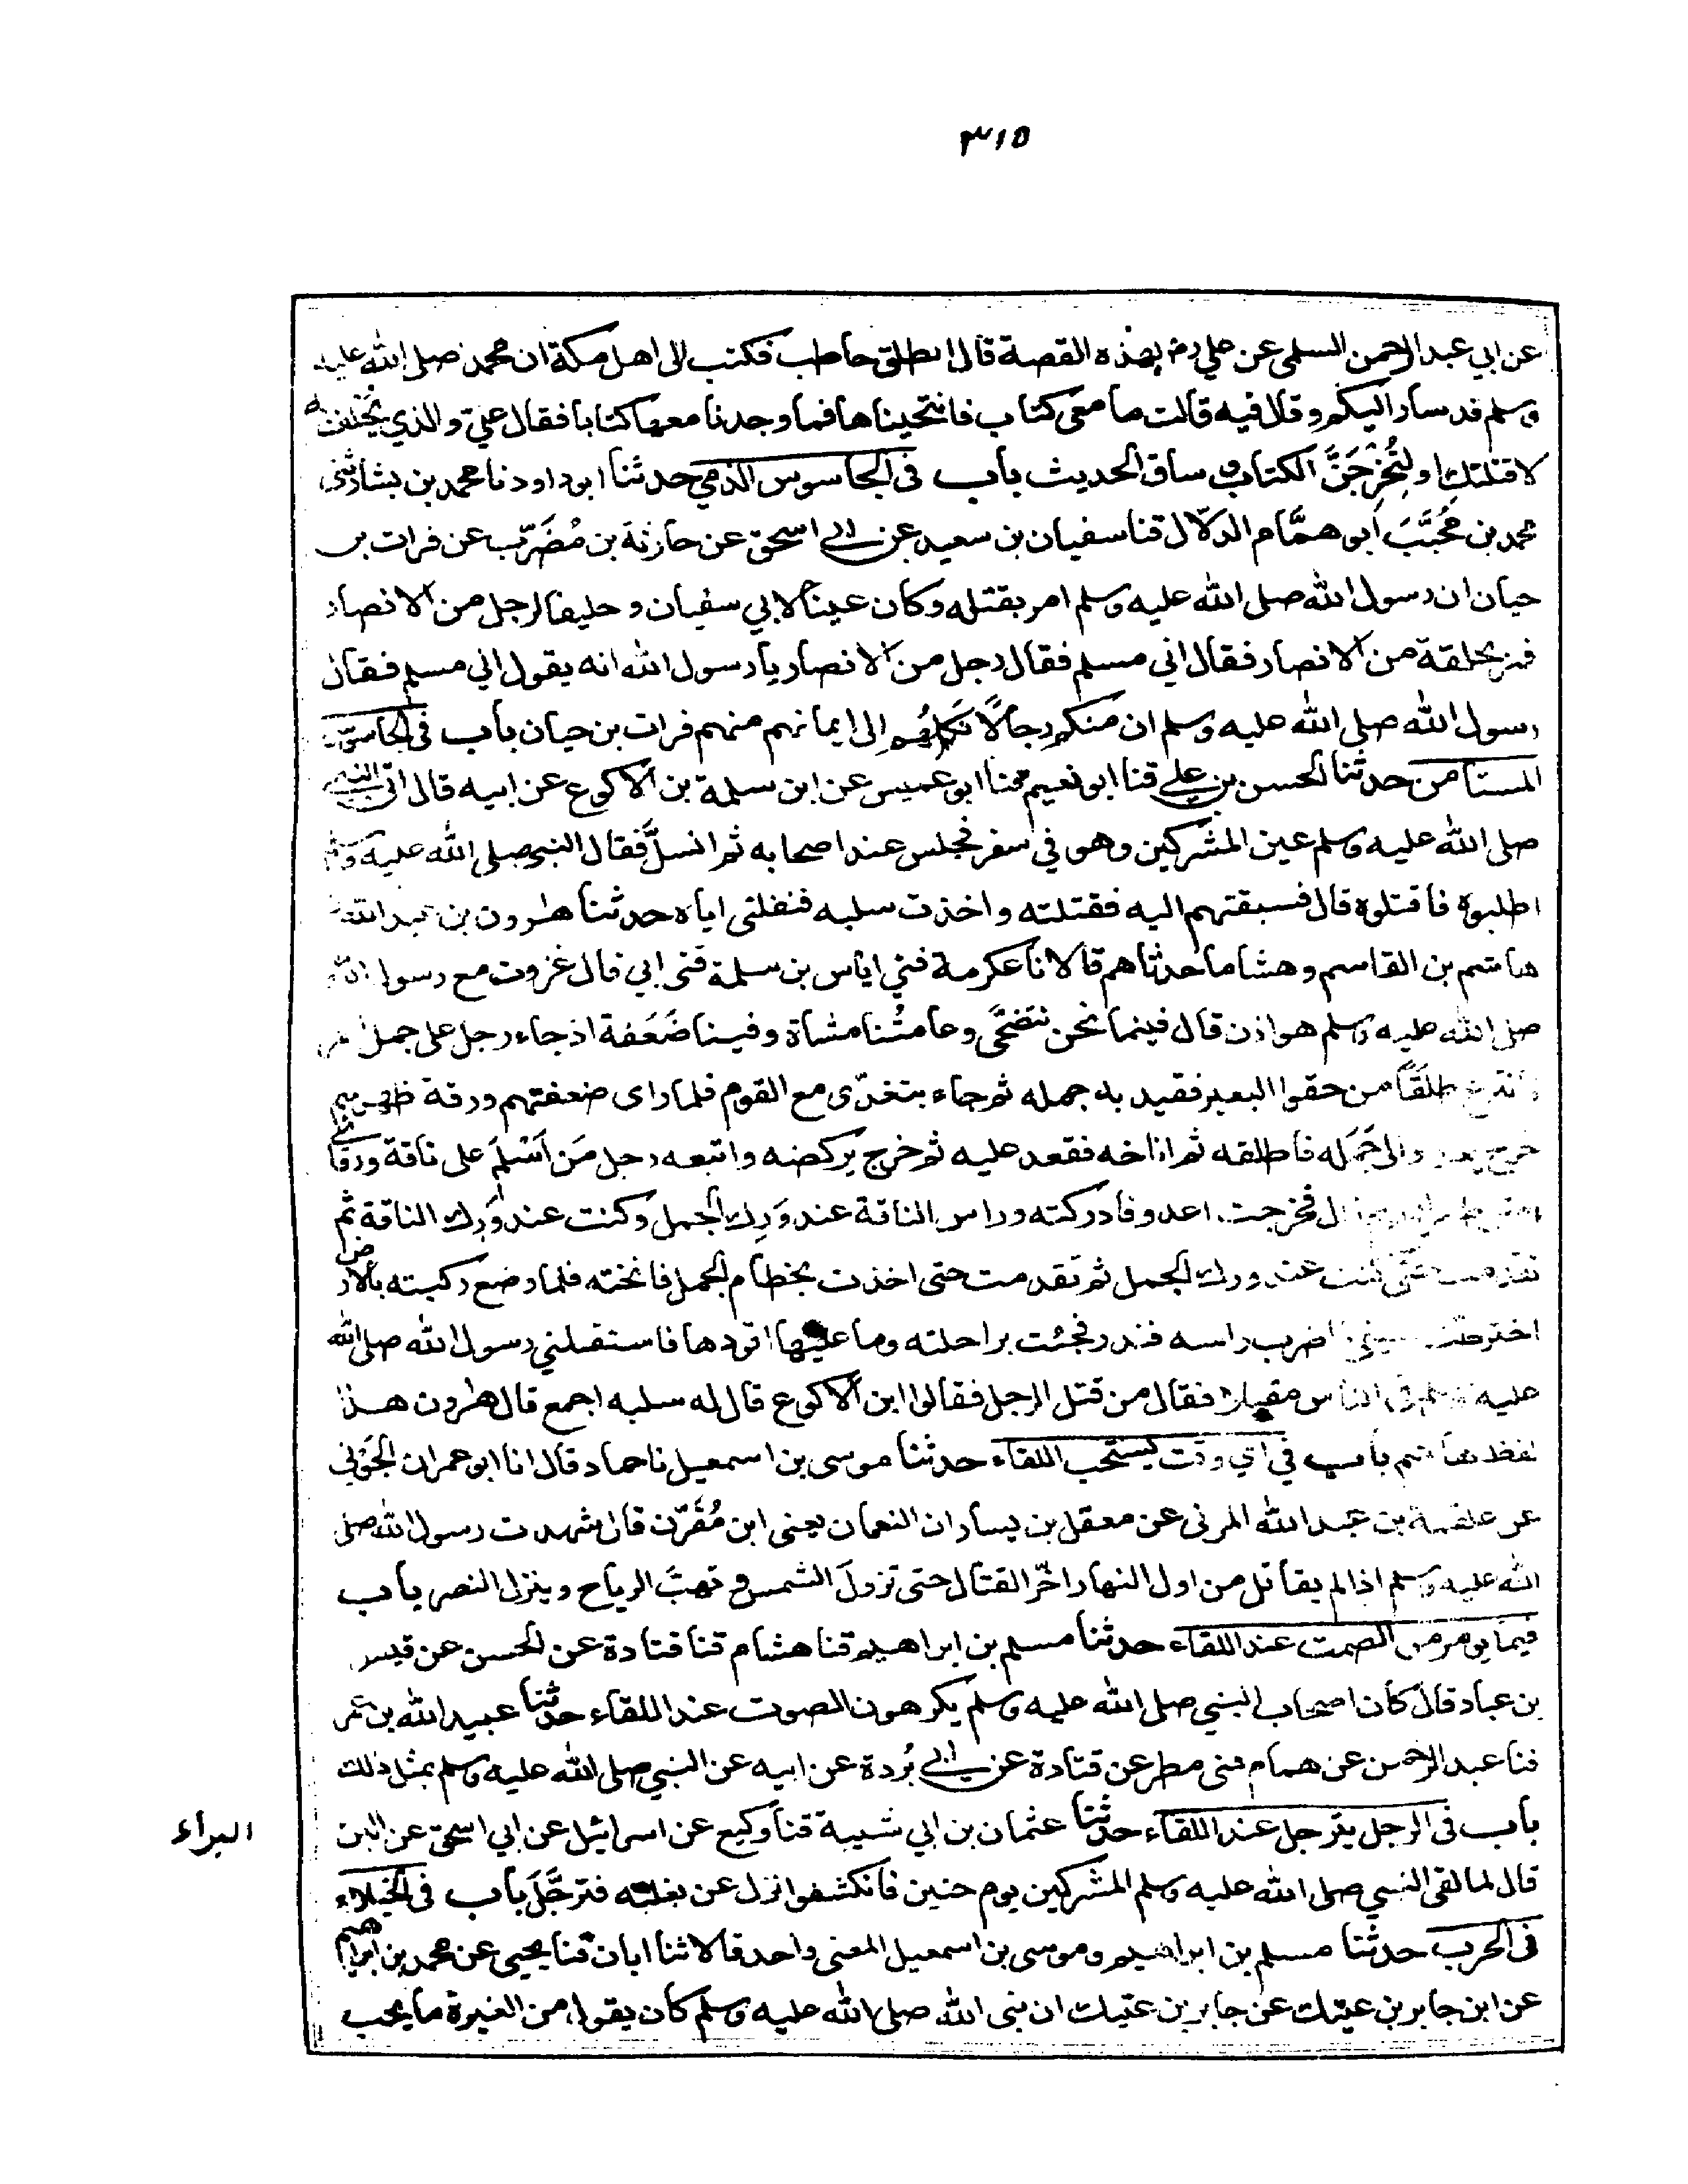 ٣١٥
عن ابي عبد الرحمن السلمى عن علي رض بهذه القصة قال انطلق حاطب فكتب الى اهل مكة ان محمد صلى الله عليه
وسلم قد سار اليكم وقال فيه قالت ما معى كتاب فانتحيناها فما وجدنا معها كتابا فقال علي والذي يحلف به
لاقتلنك او لتُخْرِجَنَّ الكتاب وساق الحديث باب فى الجاسوس الذمي حدثنا ابو داود نا محمد بن بشار ثنى
محمد بن مُحَبَّبَ أبو همَّام الدلّال قثنا سفيان بن سعيد عن ابي اسحق عن حارثة بن مُضَرِّب عن فرات بن
حيان ان رسول الله صلى الله عليه وسلم امر بقتله وكان عينًا لابي سفيان وحليفا لرجل من الانصار
فمر بحلقة من الانصار فقال اني مسلم فقال رجل من الانصار يا رسول الله انه يقول اني مسلم فقال
رسول الله صلى الله عليه وسلم ان منكم رجالًا نَكِلُهُم الى ايمانهم منهم فرات بن حيان باب فى الجاسوس
المستامن حدثنا الحسن بن علي قثنا ابو نعيم قثنا ابو عميس عن ابن سلمة بن الاكوع عن ابيه قال اتى النبي
صلى الله عليه وسلم عين المشركين وهو في سفر فجلس عند اصحابه ثم انسلَّ فقال النبي صلى الله عليه وسلم
اطلبوه فاقتلوه قال فسبقتهم اليه فقتلته واخذت سلبه فنفلنى اياه حدثنا هٰرون بن عبد الله
هاشم بن القاسم وهشاما حدثناهم قالا نا عكرمة ثني اياس بن سلمة ثنى ابي قال غزوت مع رسول الله
صلى الله عليه وسلم هوازن قال فبينما نحن نتضحَّى وعامتُنا مشاة وفينا ضَعَفة اذ جاء رجل على جمل
فانتزع طلَقًا من حقو البعير فقيد به جمله ثم جاء يتغدّى مع القوم فلما راى ضعفتهم ورقة ظهرهم
خرج يعدو الى جَمَله فاطلقه ثم اناخه فقعد عليه ثم خرج يركضه واتبعه رجل مَن اَسْلَمَ على ناقة ورقاء
قال فخرجت اعدو فادركته وراس الناقة عند وَرِك الجمل وكنت عند وَرِك الناقة ثم
تقدمت حتى كنت عند ورك الجمل ثم تقدمت حتى اخذت بخطام الجمل فانخته فلما وضع ركبته بالارض
اخترطت سيفي اضرب راسه فندر فجئت براحلته وما عليها اقودها فاستقبلني رسول الله صلى الله
عليه وسلم في الناس مقبلا فقال من قتل الرجل فقالوا ابن الاكوع قال له سلبه اجمع قال هٰرون هذا
لفظ هاشم باب في اي وقت يُستحب اللقاء حدثنا موسى بن اسمعيل نا حماد قال انا ابو عمران الجَوْني
عن علقمة بن عبد الله المزنى عن معقل بن يسار ان النعمان يعنى ابن مُقَرِّن قال شهدت رسول الله صلى
الله عليه وسلم اذا لم يقاتل من اول النهار اخّر القتال حتى تزولَ الشمس و تهبّ الرياح وينزل النصر باب
فيما يومر من الصمت عند اللقاء حدثنا مسلم بن ابراهيم قثنا هشام قثنا قتادة عن الحسن عن قيس
بن عباد قال كان اصحاب النبي صلى الله عليه وسلم يكرهون الصوت عند اللقاء حدثنا عبيد الله بن عمر
قثنا عبد الرحمن عن همام ثنى مطر عن قتادة عن ابي بُردة عن ابيه عن النبي صلى الله عليه وسلم بمثل ذلك
باب فى الرجل يترجل عند اللقاء حدثنا عثمان بن ابي شيبة قثنا وكيع عن اسرائيل عن ابي اسحق عن البراء
قال لما لقى النبي صلى الله عليه وسلم المشركين يوم حنين فانكشفوا نزل عن بغلته فترجَّلَ باب فى الخيلاء
فى الحرب حدثنا مسلم بن ابراهيم وموسى بن اسمعيل المعنى واحد قالا ثنا ابان قثنا يحيى عن محمد بن ابراهيم
عن ابن جابر بن عتيك عن جابر بن عتيك ان نبى الله صلى الله عليه وسلم كان يقول من الغيرة ما يحب